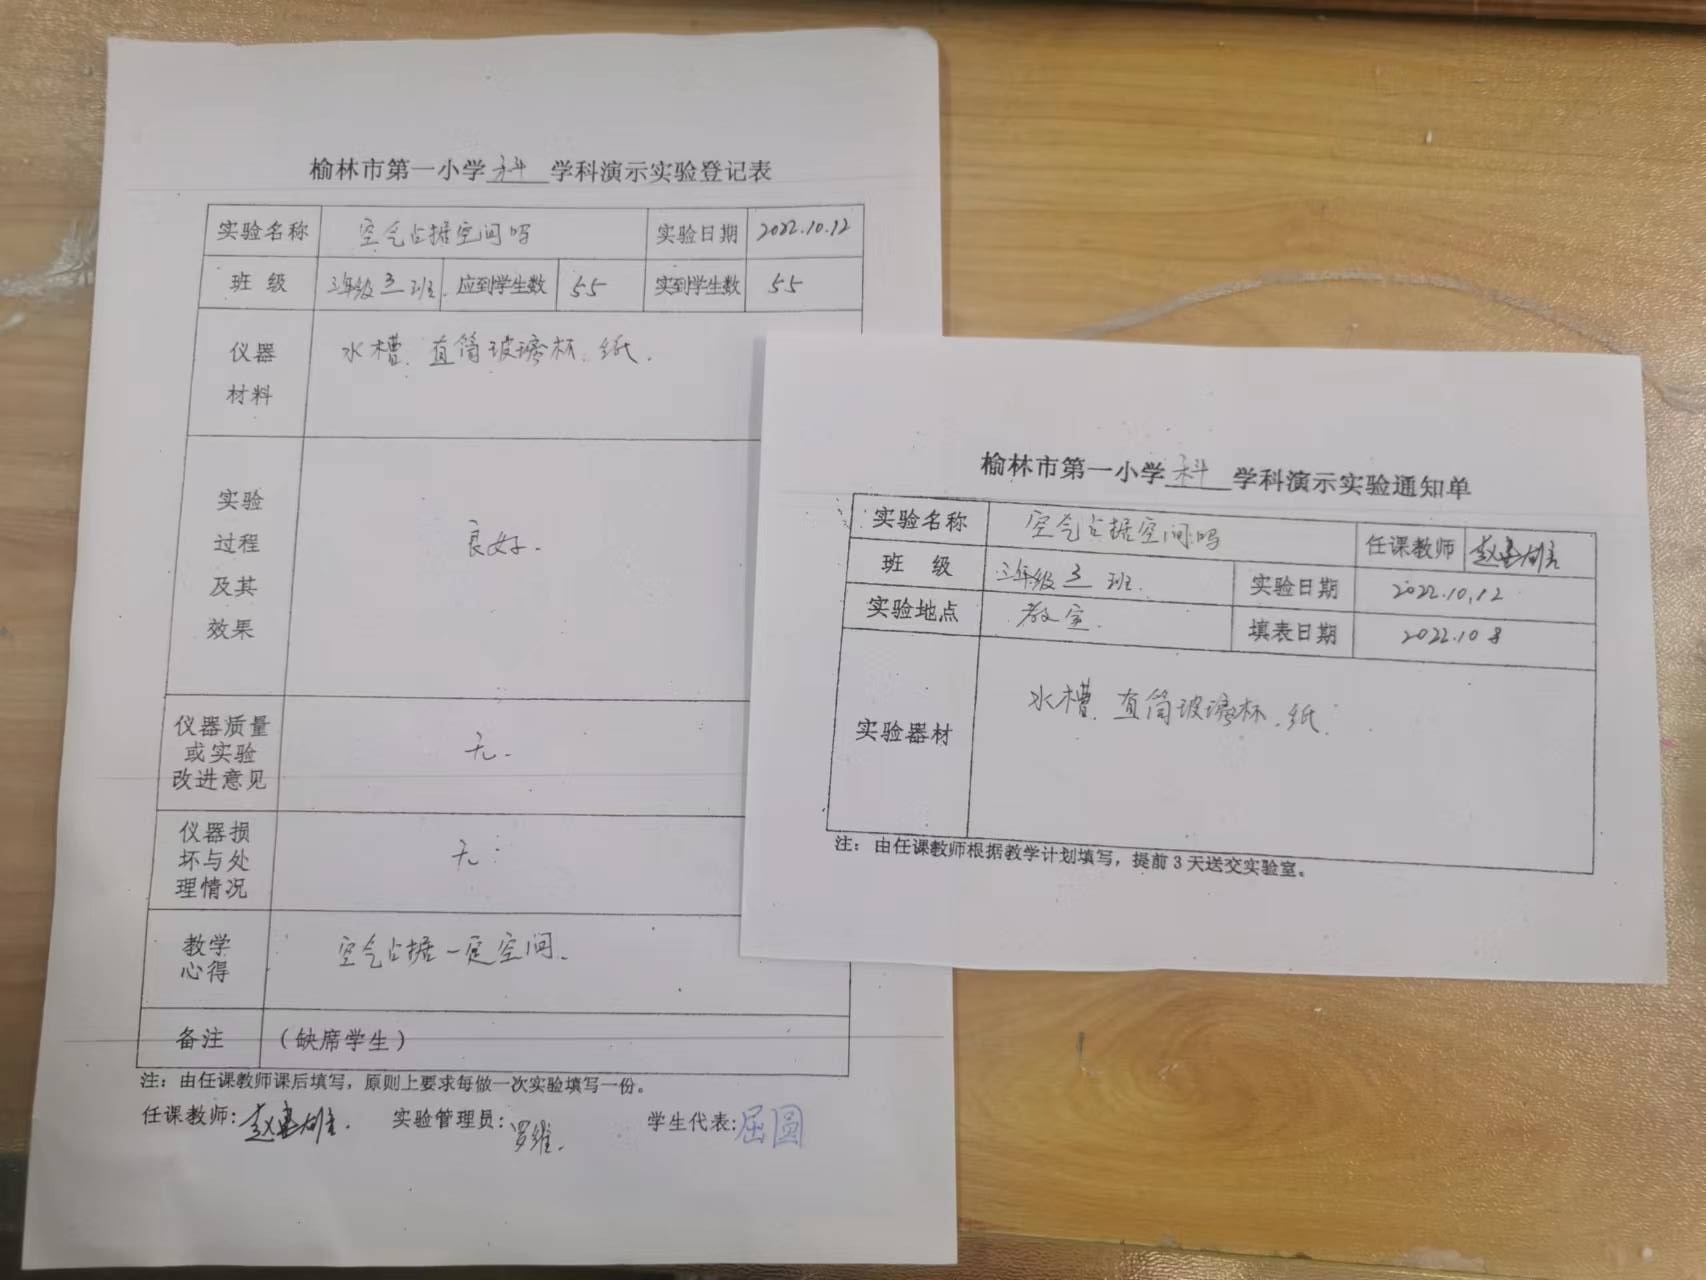 榆林市第一小学 科 学科演示实验登记表
实验名称 空气占据空间吗 实验日期 2022.10.12
班 级 三年级 3 班. 应到学生数 55 实到学生数 55
仪器材料 水槽. 直筒玻璃杯. 纸.
实验过程及其效果 良好.
仪器质量或实验改进意见 无.
仪器损坏与处理情况 无.
教学心得 空气占据一定空间.
备注 （缺席学生）
注：由任课教师课后填写，原则上要求每做一次实验填写一份。
任课教师: 赵 实验管理员: 罗维. 学生代表: 屈圆
榆林市第一小学 科 学科演示实验通知单
实验名称 空气占据空间吗 任课教师 赵
班 级 三年级 3 班. 实验日期 2022.10.12
实验地点 教室. 填表日期 2022.10 8
实验器材 水槽. 直筒玻璃杯. 纸.
注：由任课教师根据教学计划填写，提前3天送交实验室。